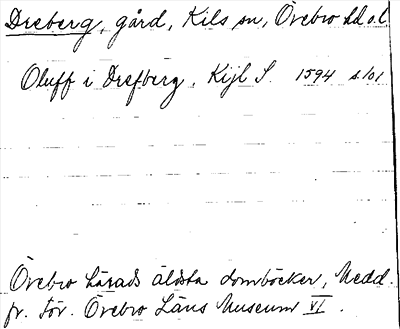 Dreberg, gård, Kils sn, Örebro hd o. l
Oluff i Drefberg, Kijl S. 1594 s. 101
Örebro härads äldsta domböcker, Medd.
fr. För. Örebro Läns Museum VI.